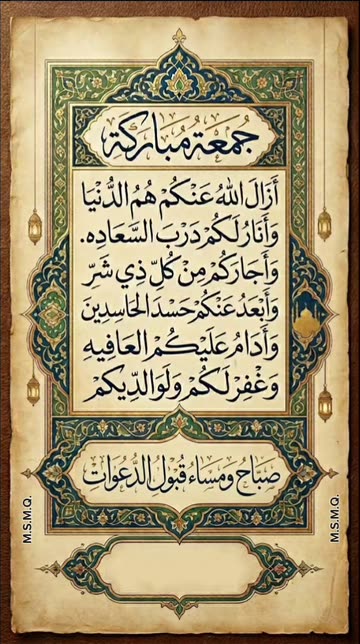 جُمعَة مُبَاركَة
أَزَالَ اللهُ عَنكُمْ هُمُ الدُّنْيَا
وَأَنَارُ لَكُمْ دَرْبَ السَّعَادِه.
وَأَجَارَكُمْ مِنْ كُلِّ ذِي شَرّ
وَأَبْعَدُ عَنْكُمْ حَسَدَ الحَاسِدِينَ
وَأَدَامُ عَلَيكُمُ العَافِيهِ
وَغْفِرْ لَكُمْ وَلَوَالدِّيكِمْ
صَبَاح وَمسَاء قبُول الدَّعوَات
M.S.M.Q.
M.S.M.Q.